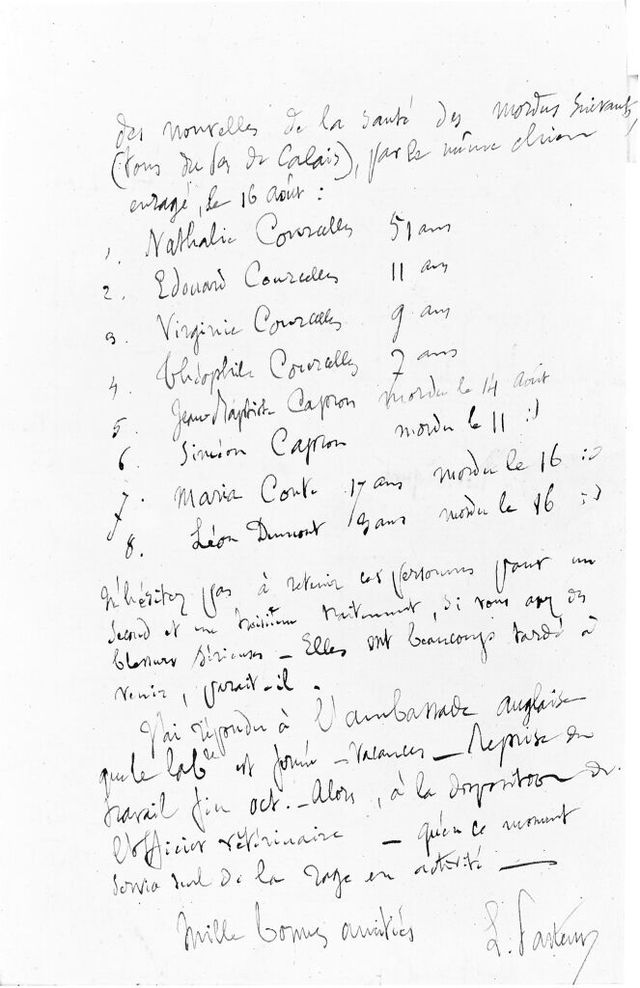 des nouvelles de la santé des mordus suivants,
(tous du Pas de Calais), par le même chien
enragé, le 16 août :
1. Nathalie Courcelles 51 ans
2. Edouard Courcelles 11 ans
3. Virginie Courcelles 9 ans
4. Théophile Courcelles 7 ans
5. Jean-Baptiste Capron mordu le 14 août
6. Siméon Capron mordu le 11 :d
7. Maria Conte 17 ans mordu le 16 :d
8. Léon Dumont 3 ans mordu le 16 :d
N'hésitez pas à retenir ces personnes pour un
second et un troisième traitement, si vous avez des
blessures sérieuses — Elles ont beaucoup tardé à
venir, paraît-il.
J'ai répondu à l'ambassade anglaise
que le lab^re est fermé — Vacances — Reprise du
travail fin oct. — Alors, à la disposition de
l'officier vétérinaire — qu'en ce moment
service seul de la rage en activité —
Mille bonnes amitiés L. Pasteur